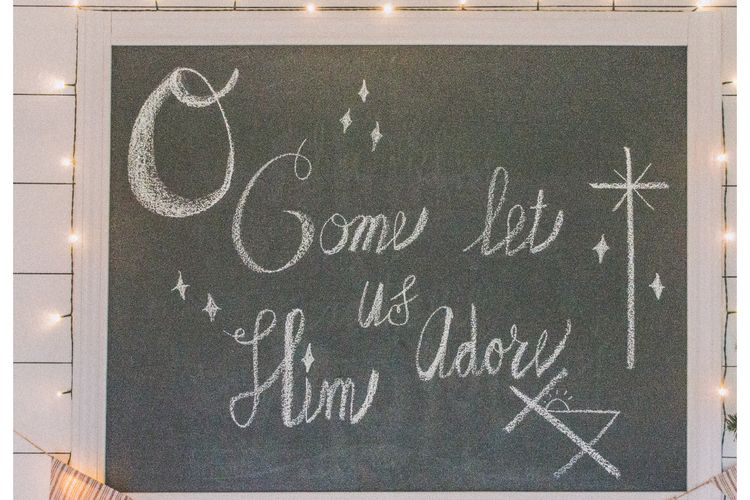 O
Come let
us
Adore
Him